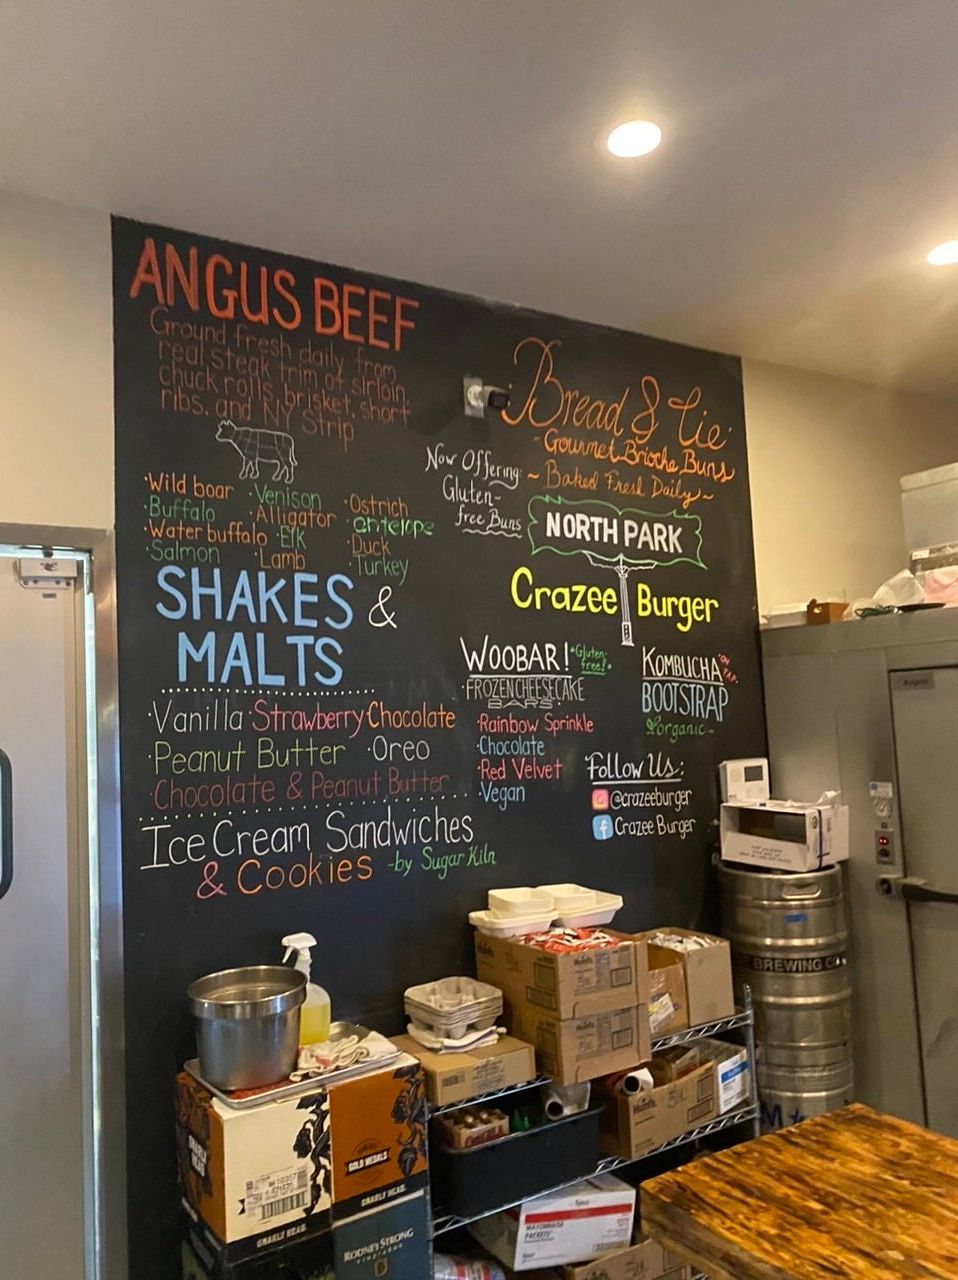 ANGUS BEEF
Ground fresh daily from
real steak trim of sirloin,
chuck rolls, brisket, short
ribs, and NY Strip
·Wild boar ·Venison ·Ostrich
·Buffalo ·Alligator ·antelope
·Water buffalo ·Elk ·Duck
·Salmon ·Lamb ·Turkey
SHAKES &
MALTS
·Vanilla ·Strawberry ·Chocolate
·Peanut Butter ·Oreo
·Chocolate & Peanut Butter
Ice Cream Sandwiches
& Cookies -by Sugar Kiln
Bread & Cie
-Gourmet Brioche Buns
~Baked Fresh Daily~
Now Offering:
Gluten-
free Buns
NORTH PARK
Crazee Burger
WOOBAR! •Gluten-
free!•
·FROZEN CHEESECAKE
BARS·
·Rainbow Sprinkle
·Chocolate
·Red Velvet
·Vegan
KOMBUCHA •ON
TAP•
BOOTSTRAP
organic-
Follow Us:
@crazeeburger
Crazee Burger
BREWING CO
GOLD MEDALS
GNARLY HEAD
GNARLY HEAD
RODNEY STRONG
VINEYARDS
Heinz
Heinz
MAYONNAISE
PACKETS